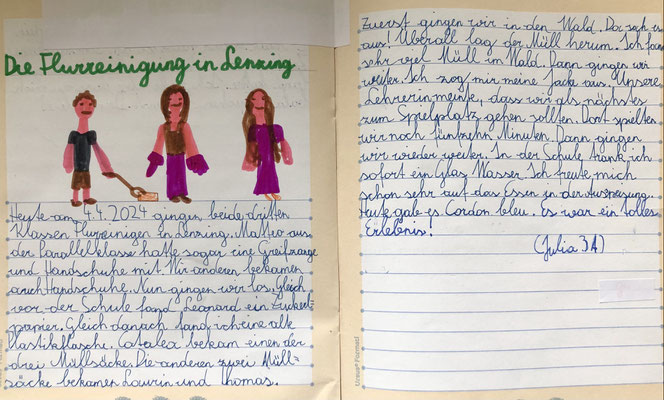 Die Flurreinigung in Lenzing
Heute am 4.4.2024 gingen beide dritten
Klassen Flurreinigen in Lenzing. Matteo aus
der Parallelklasse hatte sogar eine Greifzange
und Handschuhe mit. Wir anderen bekamen
auch Handschuhe. Nun gingen wir los. Gleich
vor der Schule fand Leonard ein Zuckerl-
papier. Gleich danach fand ich eine alte
Plastikflasche. Catalea bekam einen der
drei Müllsäcke. Die anderen zwei Müll-
säcke bekamen Laurin und Thomas.
Zuerst gingen wir in den Wald. Da sah es
aus! Überall lag der Müll herum. Ich fand
sehr viel Müll im Wald. Dann gingen wir
weiter. Ich zog mir meine Jacke aus. Unsere
Lehrerin meinte, dass wir als nächstes
zum Spielplatz gehen sollten. Dort spielten
wir noch fünfzehn Minuten. Dann gingen
wir wieder weiter. In der Schule trank ich
sofort ein Glas Wasser. Ich freute mich
schon sehr auf das Essen in der Ausspeisung.
Heute gab es Cordon bleu. Es war ein tolles
Erlebnis!
(Julia 3A)